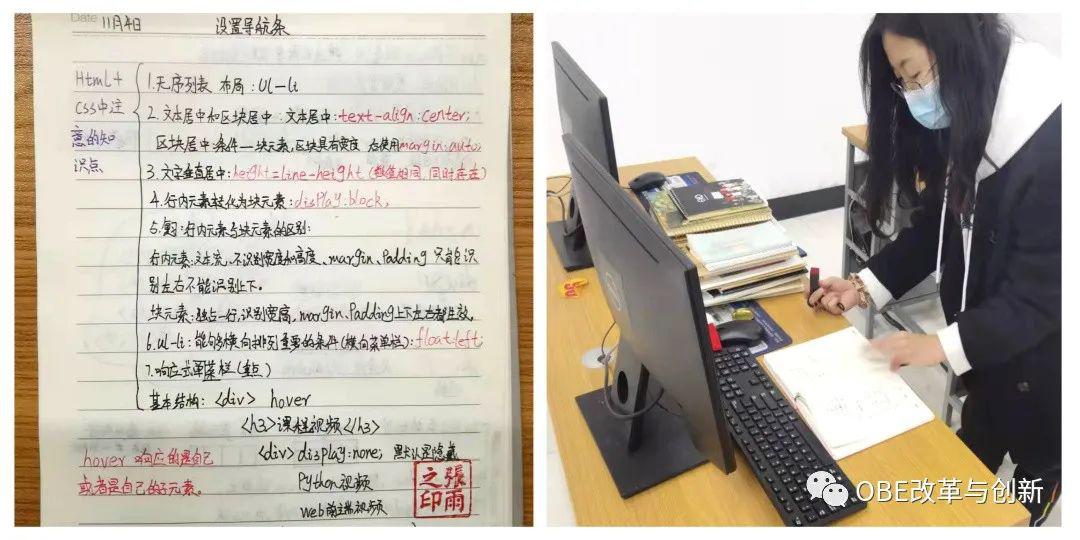 Date 11月4日 设置导航条
Html+
CSS中注
意的知
识点
1.无序列表 布局:Ul-li
2.文本居中和区块居中 文本居中:text-align:center;
区块居中:条件一块元素,区块具有宽度 右使用margin:auto;
3.文字垂直居中:height=line-height(数值相同,同时存在)
4.行内元素转化为块元素:display:block,
5.复习:行内元素与块元素的区别:
行内元素:文本流,不识别宽度和高度、margin、Padding 只能识
别左右不能识别上下。
块元素:独占一行,识别宽高,margin、Padding上下左右都生效。
6.ul-li:能够横向排列重要的条件(横向菜单栏):float:left;
7.响应式菜单栏(重点)
基本结构:<div> hover
<h3>课程视频</h3>
<div>display:none; 默认是隐藏
Python视频
web前端视频
hover 响应的是自己
或者是自己的子元素。
張雨
之印
OBE改革与创新